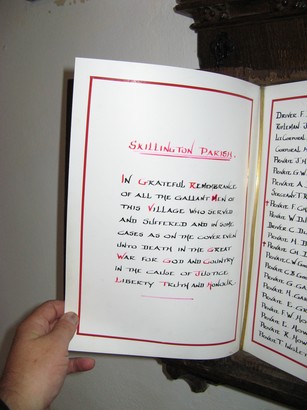 SKILLINGTON PARISH.
IN GRATEFUL REMEMBRANCE
OF ALL THE GALLANT MEN OF
THIS VILLAGE WHO SERVED
AND SUFFERED AND IN SOME
CASES AS ON THE COVER EVEN
UNTO DEATH IN THE GREAT
WAR FOR GOD AND COUNTRY
IN THE CAUSE OF JUSTICE
LIBERTY TRUTH AND HONOUR.
DRIVER F.
RIFLEMAN J
PRIVATE J.H
PRIVATE G.W
PRIVATE A.
SERGEANT T.R
PRIVATE F.
PRIVATE W.
DRIVER C.
PRIVATE H.
PRIVATE CH.
PRIVATE C.W
PRIVATE C.B
PRIVATE G.
PRIVATE H.
PRIVATE E.
PRIVATE F.W.
PRIVATE L.
PRIVATE R.
PRIVATE T.